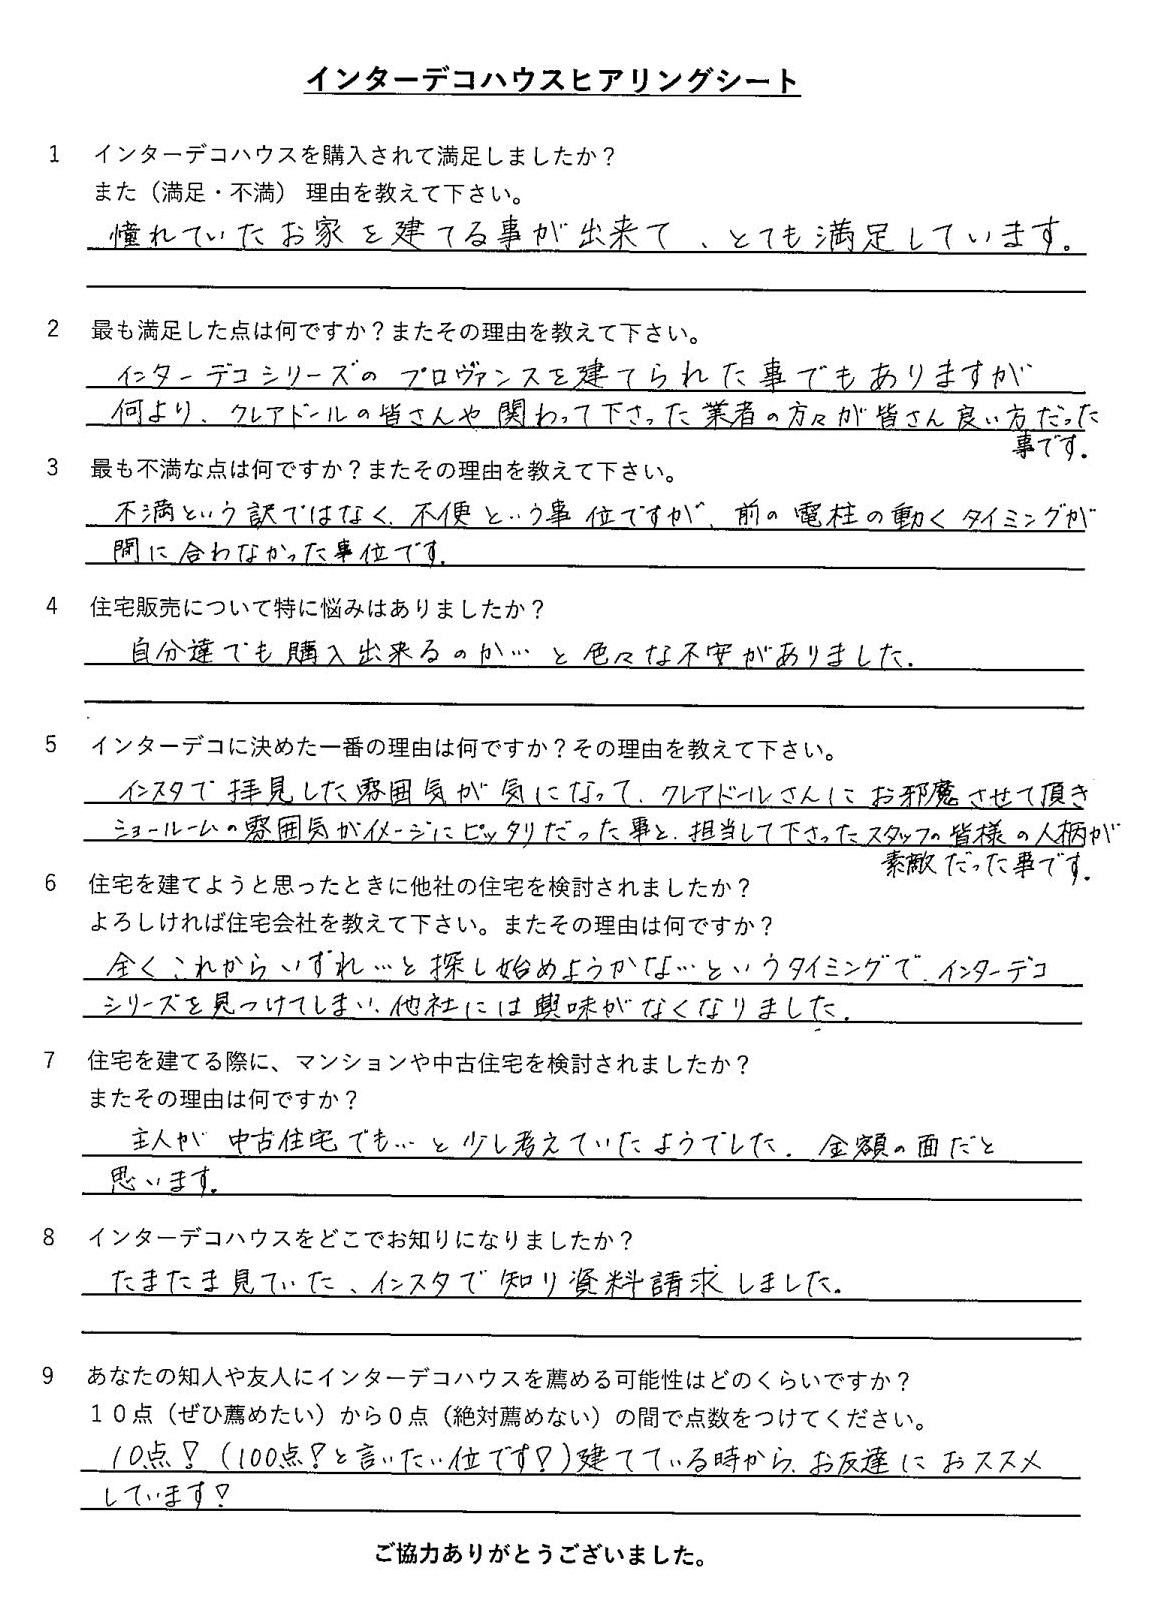 インターデコハウスヒアリングシート
1 インターデコハウスを購入されて満足しましたか？
また（満足・不満） 理由を教えて下さい。
憧れていたお家を建てる事が出来て、とても満足しています。
2 最も満足した点は何ですか？またその理由を教えて下さい。
インターデコシリーズの プロヴァンスを建てられた事でもありますが
何より、クレアドールの皆さんや関わって下さった業者の方々が皆さん良い方だった
事です。
3 最も不満な点は何ですか？またその理由を教えて下さい。
不満という訳ではなく、不便という事位ですが、前の電柱の動くタイミングが
間に合わなかった事位です。
4 住宅販売について特に悩みはありましたか？
自分達でも購入出来るのか…と色々な不安がありました。
5 インターデコに決めた一番の理由は何ですか？その理由を教えて下さい。
インスタで拝見した雰囲気が気になって、クレアドールさんにお邪魔させて頂き
ショールームの雰囲気がイメージにピッタリだった事と、担当して下さったスタッフの皆様の人柄が
素敵だった事です。
6 住宅を建てようと思ったときに他社の住宅を検討されましたか？
よろしければ住宅会社を教えて下さい。またその理由は何ですか？
全くこれからいずれ…と探し始めようかな…というタイミングで、インターデコ
シリーズを見つけてしまい、他社には興味がなくなりました。
7 住宅を建てる際に、マンションや中古住宅を検討されましたか？
またその理由は何ですか？
主人が中古住宅でも…と少し考えていたようでした。金額の面だと
思います。
8 インターデコハウスをどこでお知りになりましたか？
たまたま見ていた、インスタで知り資料請求しました。
9 あなたの知人や友人にインターデコハウスを薦める可能性はどのくらいですか？
１０点（ぜひ薦めたい）から０点（絶対薦めない）の間で点数をつけてください。
10点！（100点！と言いたい位です！）建てている時から、お友達におススメ
しています！
ご協力ありがとうございました。